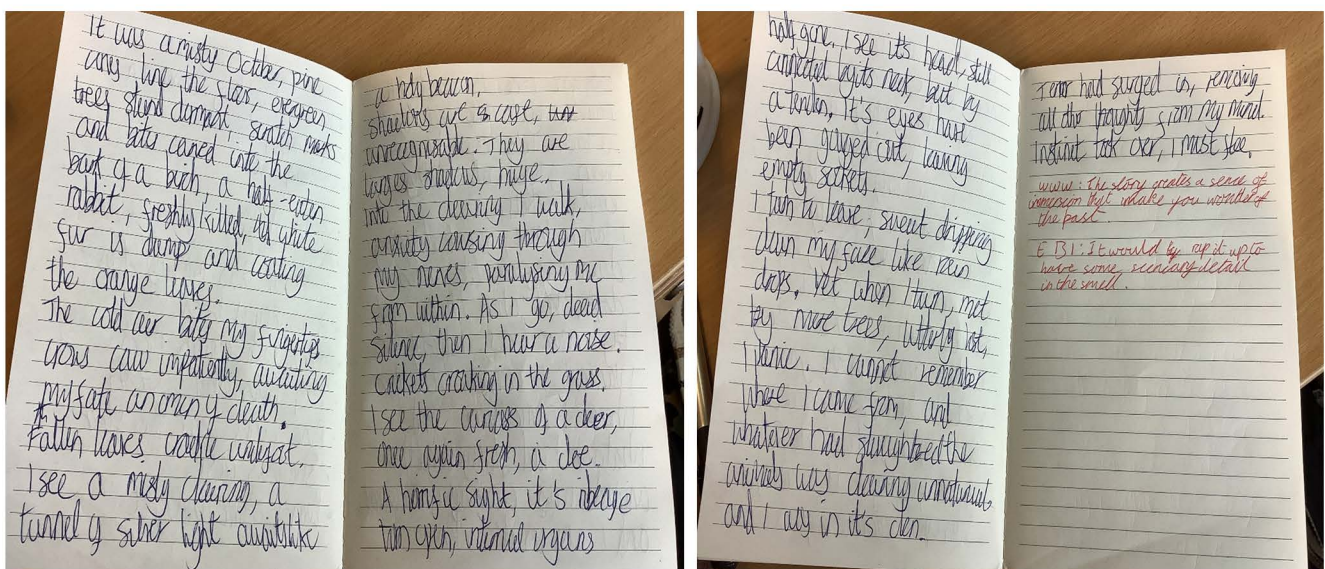 It was a misty October, pine
cones line the floor, evergreen
trees stand dormant, scratch marks
and bites carved into the
bark of a birch, a half-eaten
rabbit, freshly killed, its white
fur is damp and coating
the orange leaves.
The cold air bites my fingertips
crows caw impatiently, awaiting
my fate an omen of death.
Fallen leaves crackle underfoot.
I see a misty clearing, a
tunnel of silver light awaits like
a holy beacon.
shadows are cast,
unrecognisable. They are
larges shadows, huge.
Into the clearing I walk,
anxiety coursing through
my nerves, paralysing me
from within. As I go, dead
silence, then I hear a noise.
Crickets croaking in the grass.
I see the carcass of a deer,
once again fresh, a doe.
A horrific sight, it's ribcage
torn open, internal organs
half gone, I see it's head, still
connected by its neck, but by
a tendon. It's eyes have
been gouged out, leaving
empty sockets.
I turn to leave, sweat dripping
down my face like rain
drops. Yet when I turn, met
by more trees, utterly lost,
I panic. I cannot remember
where I came from, and
whatever had slaughtered the
animals was clearing unnatural
and I was in it's den.
Terror had surged in, removing
all other thoughts from my mind.
Instinct took over, I must flee.
WWW: The story creates a sense of
immersion that make you wonder of
the past.
EBI: It would by rip it up to
have some, scenisry detail
in the smell.